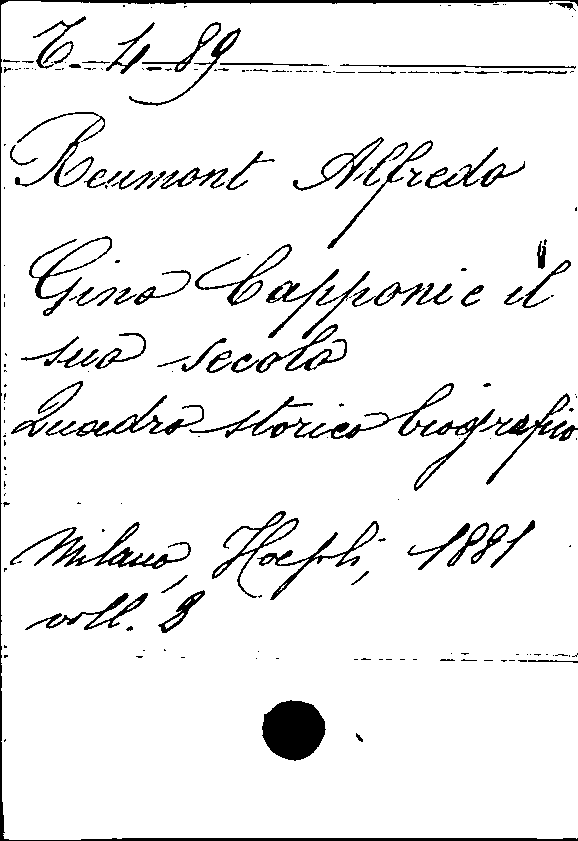 E. 4. 89
Reumont Alfredo
Gino Capponi e il
suo secolo
Quadro storico biografico
Milano, Hoepli, 1881
voll. 2